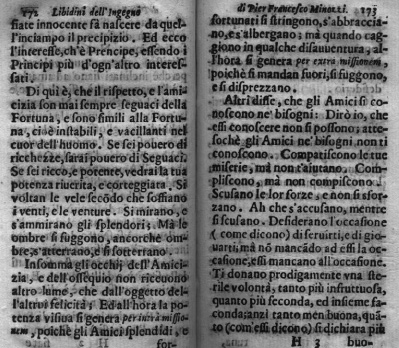 172 Libidini dell'Ingegno
fiate innocente fà nascere da quel-
l'inciampo il precipizio. Ed ecco
l'interesse, ch'è Prencipe, essendo i
Principi più d'ogn'altro interes-
sati.
Di quì è, che il rispetto, e l'ami-
cizia son mai sempre seguaci della
Fortuna, e sono simili alla Fortu-
na, ciòè instabili, e vacillanti nel
cuor dell'huomo. Se sei pouero di
ricchezze, sarai pouero di Seguaci.
Se sei ricco, e potente, vedrai la tua
potenza riuerita, e corteggiata. Si
voltan le vele secōdo che soffiano
i venti, e le venture. Si mirano, e
s'ammirano gli splendori; Mà le
ombre si fuggono, ancorche om-
bre, s'atterrano, e si sotterrano.
Insomma gli occhij dell'Amici-
zia, e dell'ossequio non riceuono
altro lume, che dall'oggetto del-
l'altrui felicità; Ed all'hora la po-
tenza visiua si genera per intrà missio-
nem, poiche gli Amici splendidi, e
for-
di Pier Francesco Minozzi. 173
fortunati si stringono, s'abbraccia-
no, e s'albergano; mà quando cag-
giono in qualche disauuentura, al-
l'hora si genera per extra missionem,
poichè si mandan fuori, si fuggono,
e si disprezzano.
Altri disse, che gli Amici si co-
noscono ne' bisogni: Dirò io, che
essi conoscere non si possono; atte-
sochè gli Amici ne' bisogni, non ti
conoscono. Compatiscono le tue
miserie, mà non t'aiutano. Com-
pliscono, mà non compiscono.
Scusano le lor forze, e non si sfor-
zano. Ah che s'accusano, mentre
si scusano. Desiderano l'occasione
( come dicono) di seruirti, e di gio-
uarti, mà nō mancādo ad essi la oc-
casione, essi mancano all'occasione.
Ti donano prodigamente vna ste-
rile volontà, tanto più infruttuosa,
quanto più seconda, ed insieme fa-
conda; anzi tanto men buona, quā-
to (com'essi dicono) si dichiara più
H 3 buo-